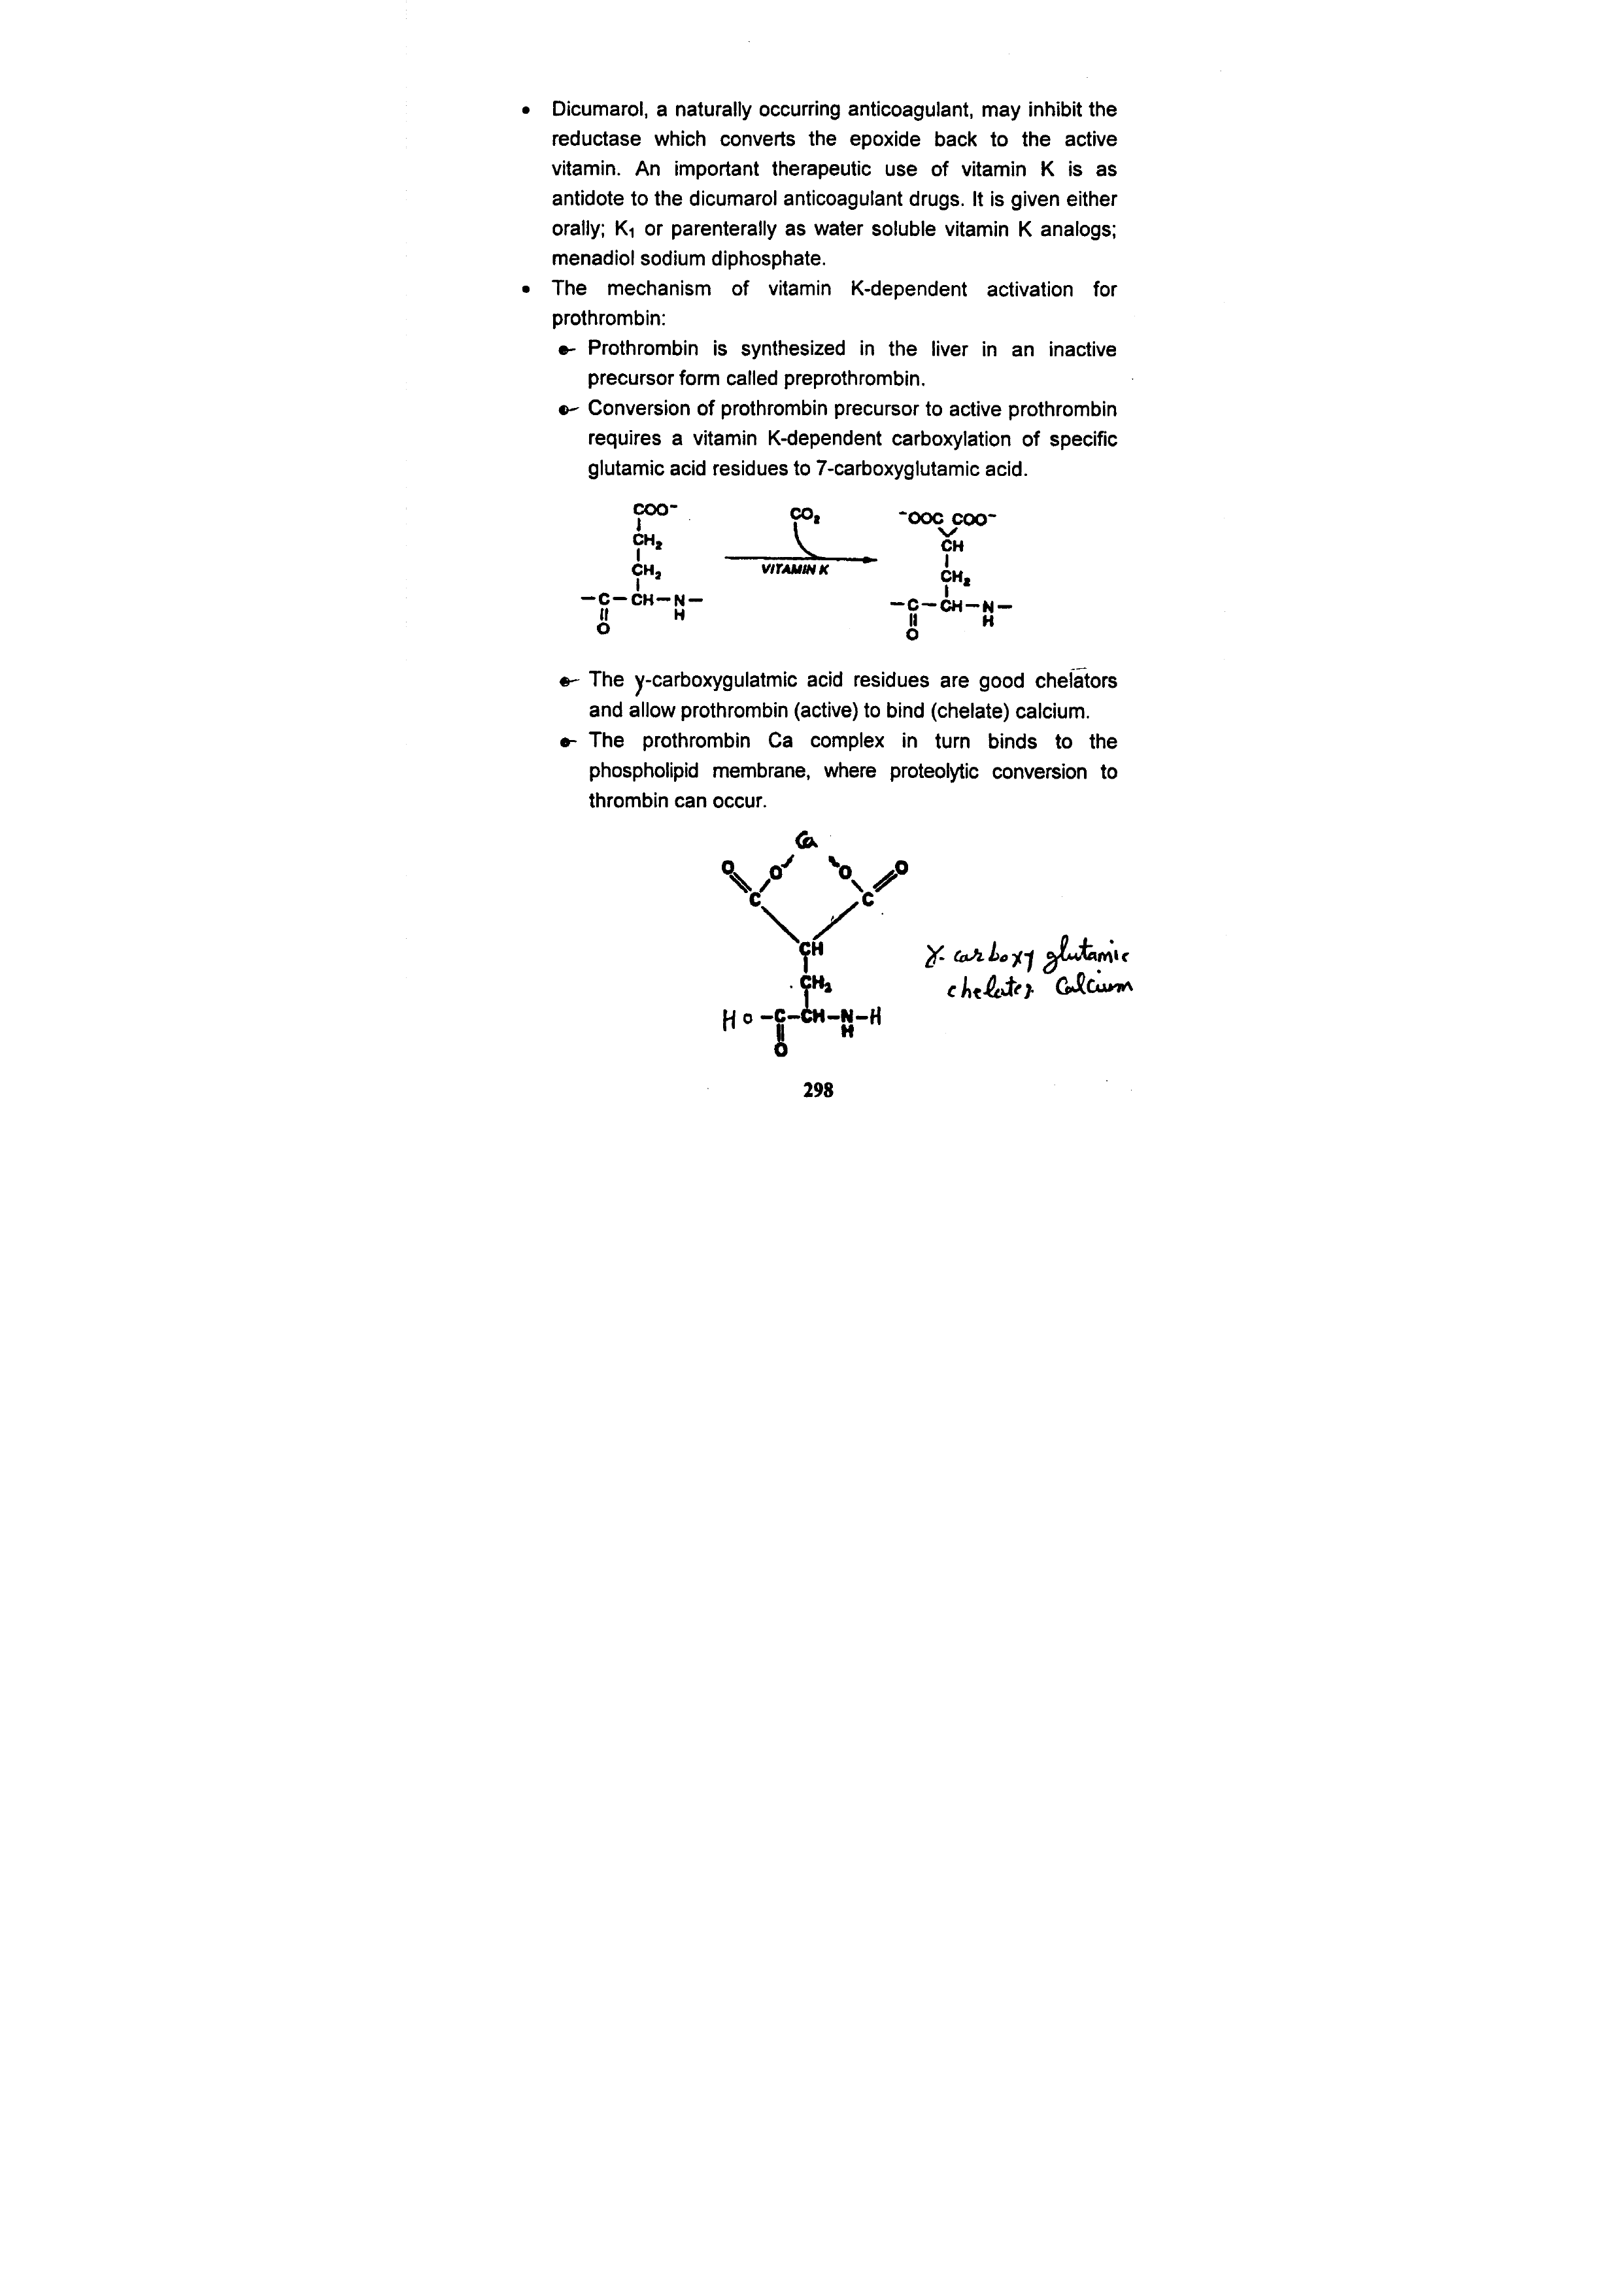 • Dicumarol, a naturally occurring anticoagulant, may inhibit the
reductase which converts the epoxide back to the active
vitamin. An important therapeutic use of vitamin K is as
antidote to the dicumarol anticoagulant drugs. It is given either
orally; K₁ or parenterally as water soluble vitamin K analogs;
menadiol sodium diphosphate.
• The mechanism of vitamin K-dependent activation for
prothrombin:
Prothrombin is synthesized in the liver in an inactive
precursor form called preprothrombin.
Conversion of prothrombin precursor to active prothrombin
requires a vitamin K-dependent carboxylation of specific
glutamic acid residues to 7-carboxyglutamic acid.
COO⁻ CO₂ ⁻OOC COO⁻
CH₂ CH
CH₂ VITAMIN K CH₂
–C–CH–N– –C–CH–N–
H H
O O
The γ-carboxygulatmic acid residues are good chelators
and allow prothrombin (active) to bind (chelate) calcium.
The prothrombin Ca complex in turn binds to the
phospholipid membrane, where proteolytic conversion to
thrombin can occur.
Ca
O O O O
C C
CH
γ- carboxy glutamic
CH₂
chelates Calcium
HO–C–CH–N–H
H
O
298